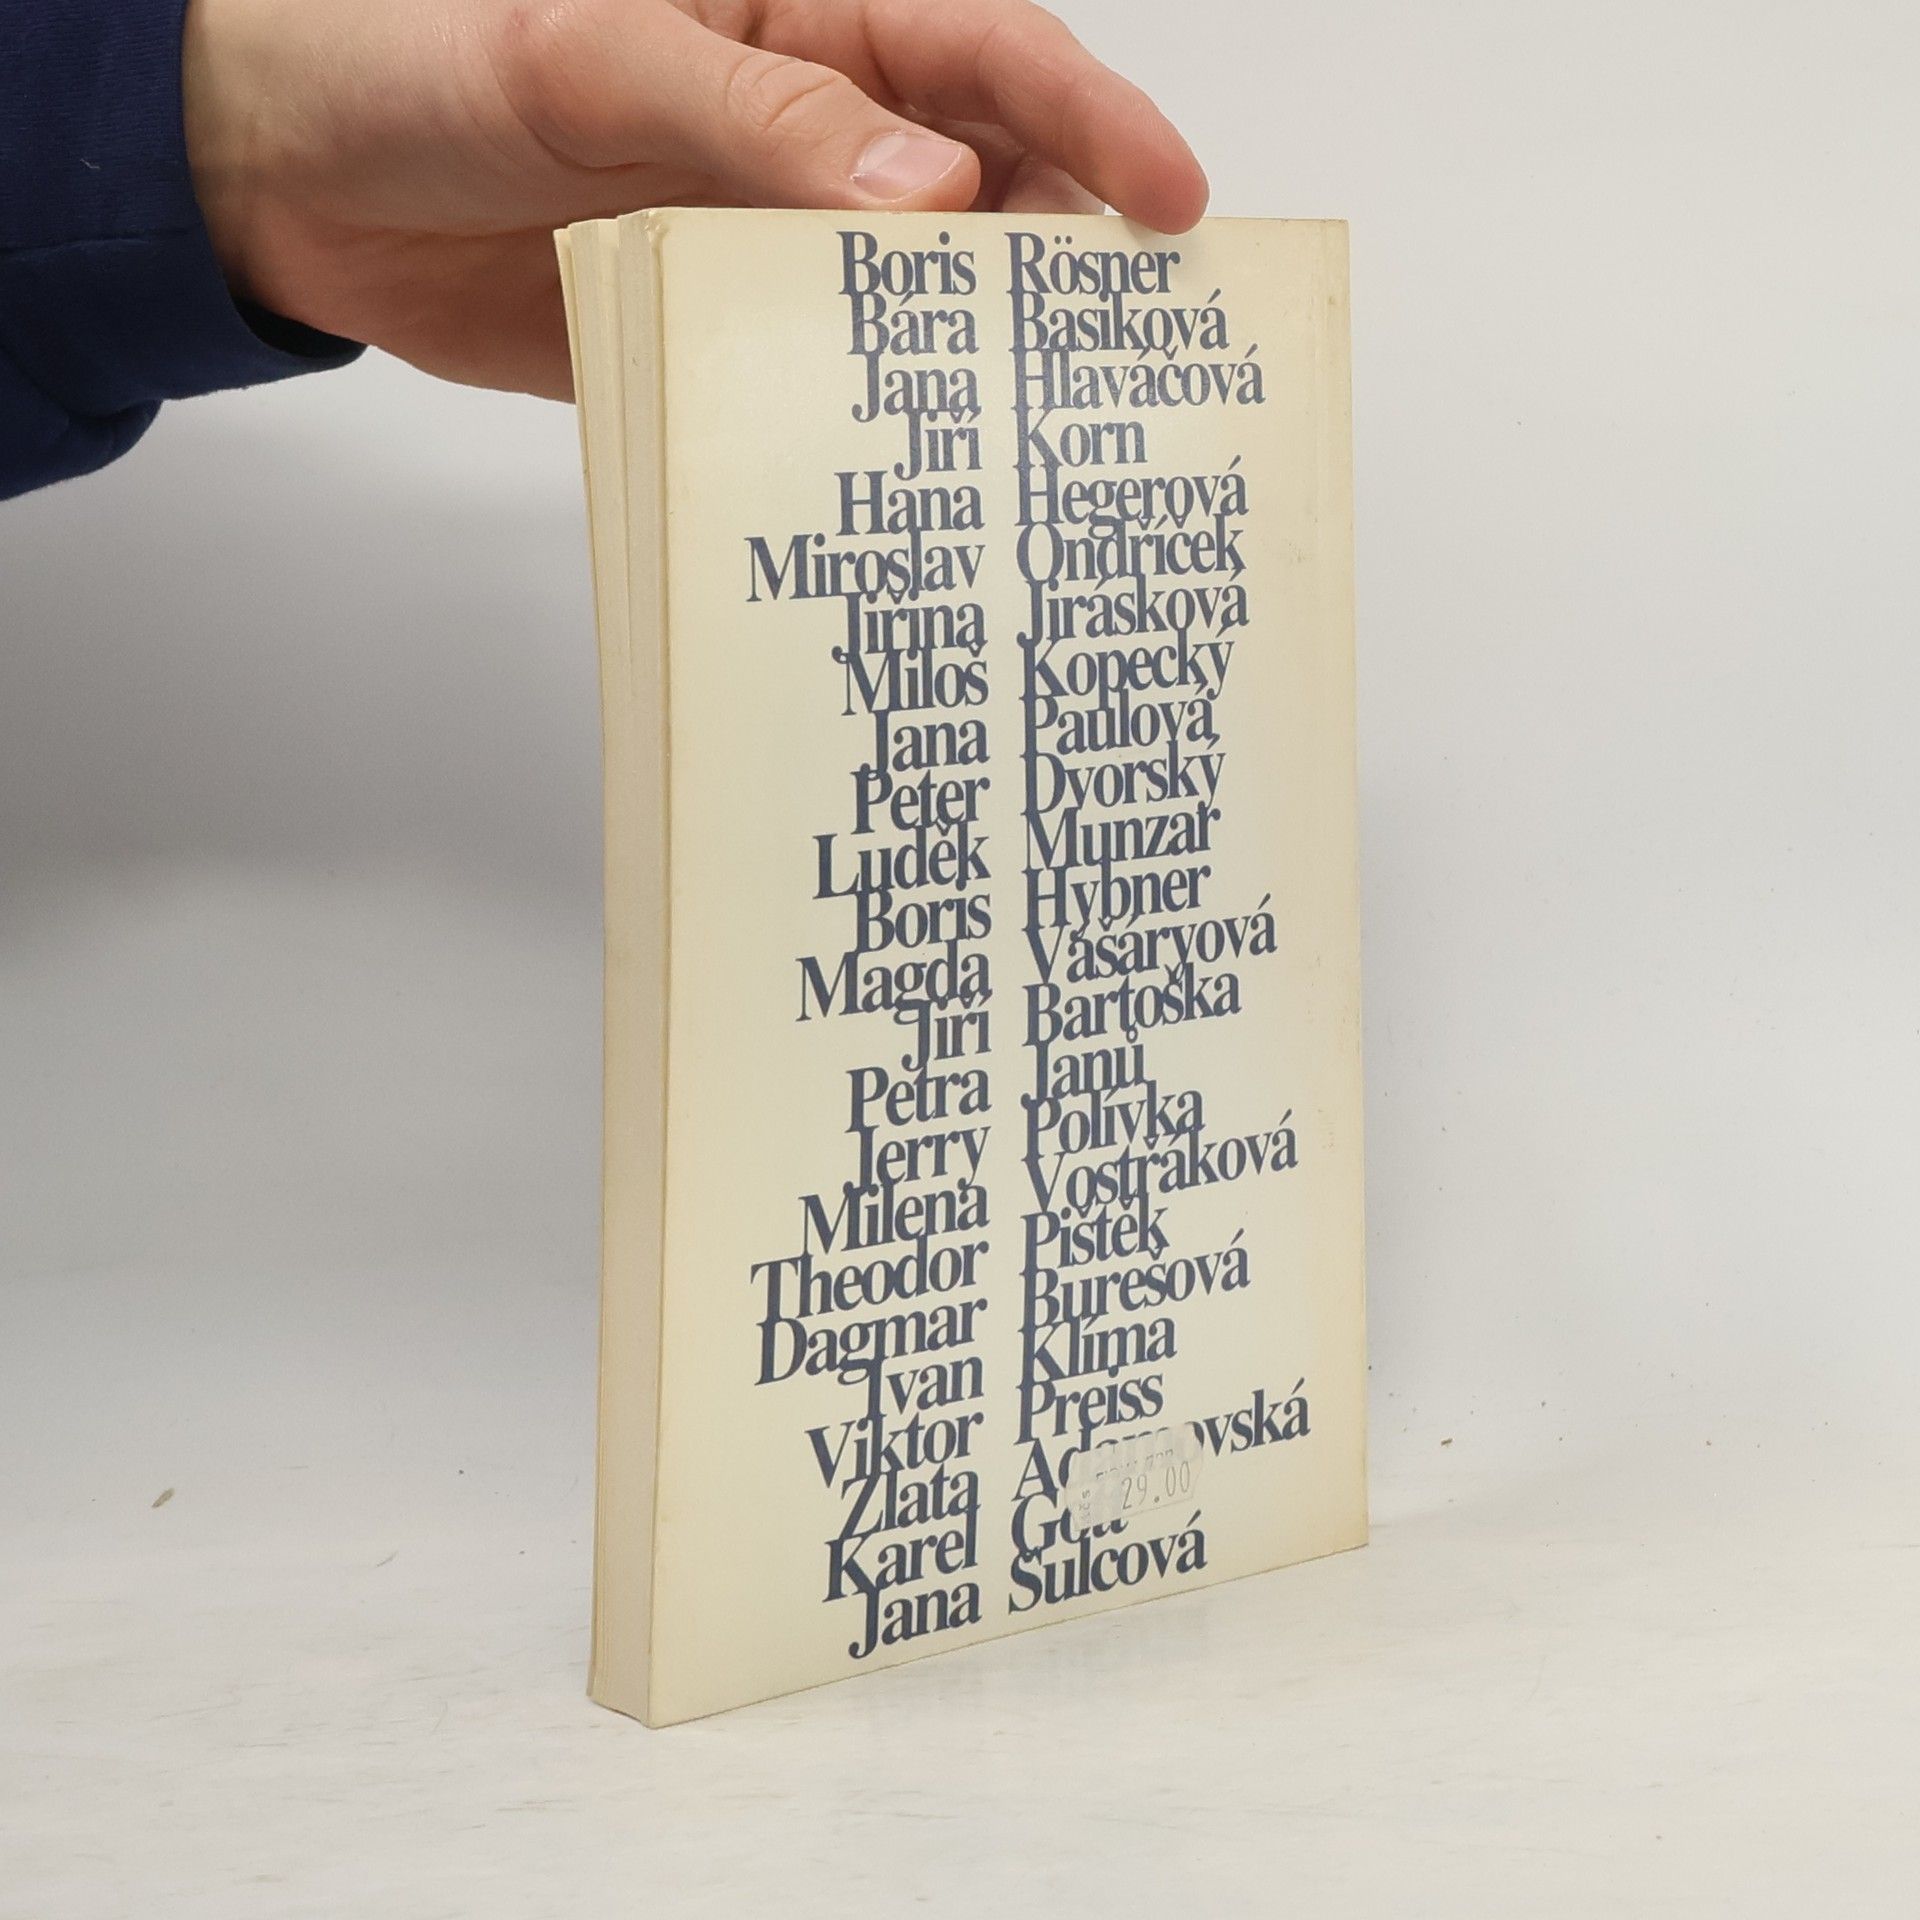 Boris Rösner
Bára Basiková
Jana Hlaváčová
Jiří Korn
Hana Hegerová
Miroslav Ondříček
Jiřina Jirásková
Miloš Kopecký
Jana Paulová
Peter Dvorský
Luděk Munzar
Boris Hybner
Magda Vášáryová
Jiří Bartoška
Petra Janů
Jerry Polívka
Milena Vostřáková
Theodor Pištěk
Dagmar Burešová
Ivan Klíma
Viktor Preiss
Zlata Adamovská
29.00
Karel Gott
Jana Šulcová